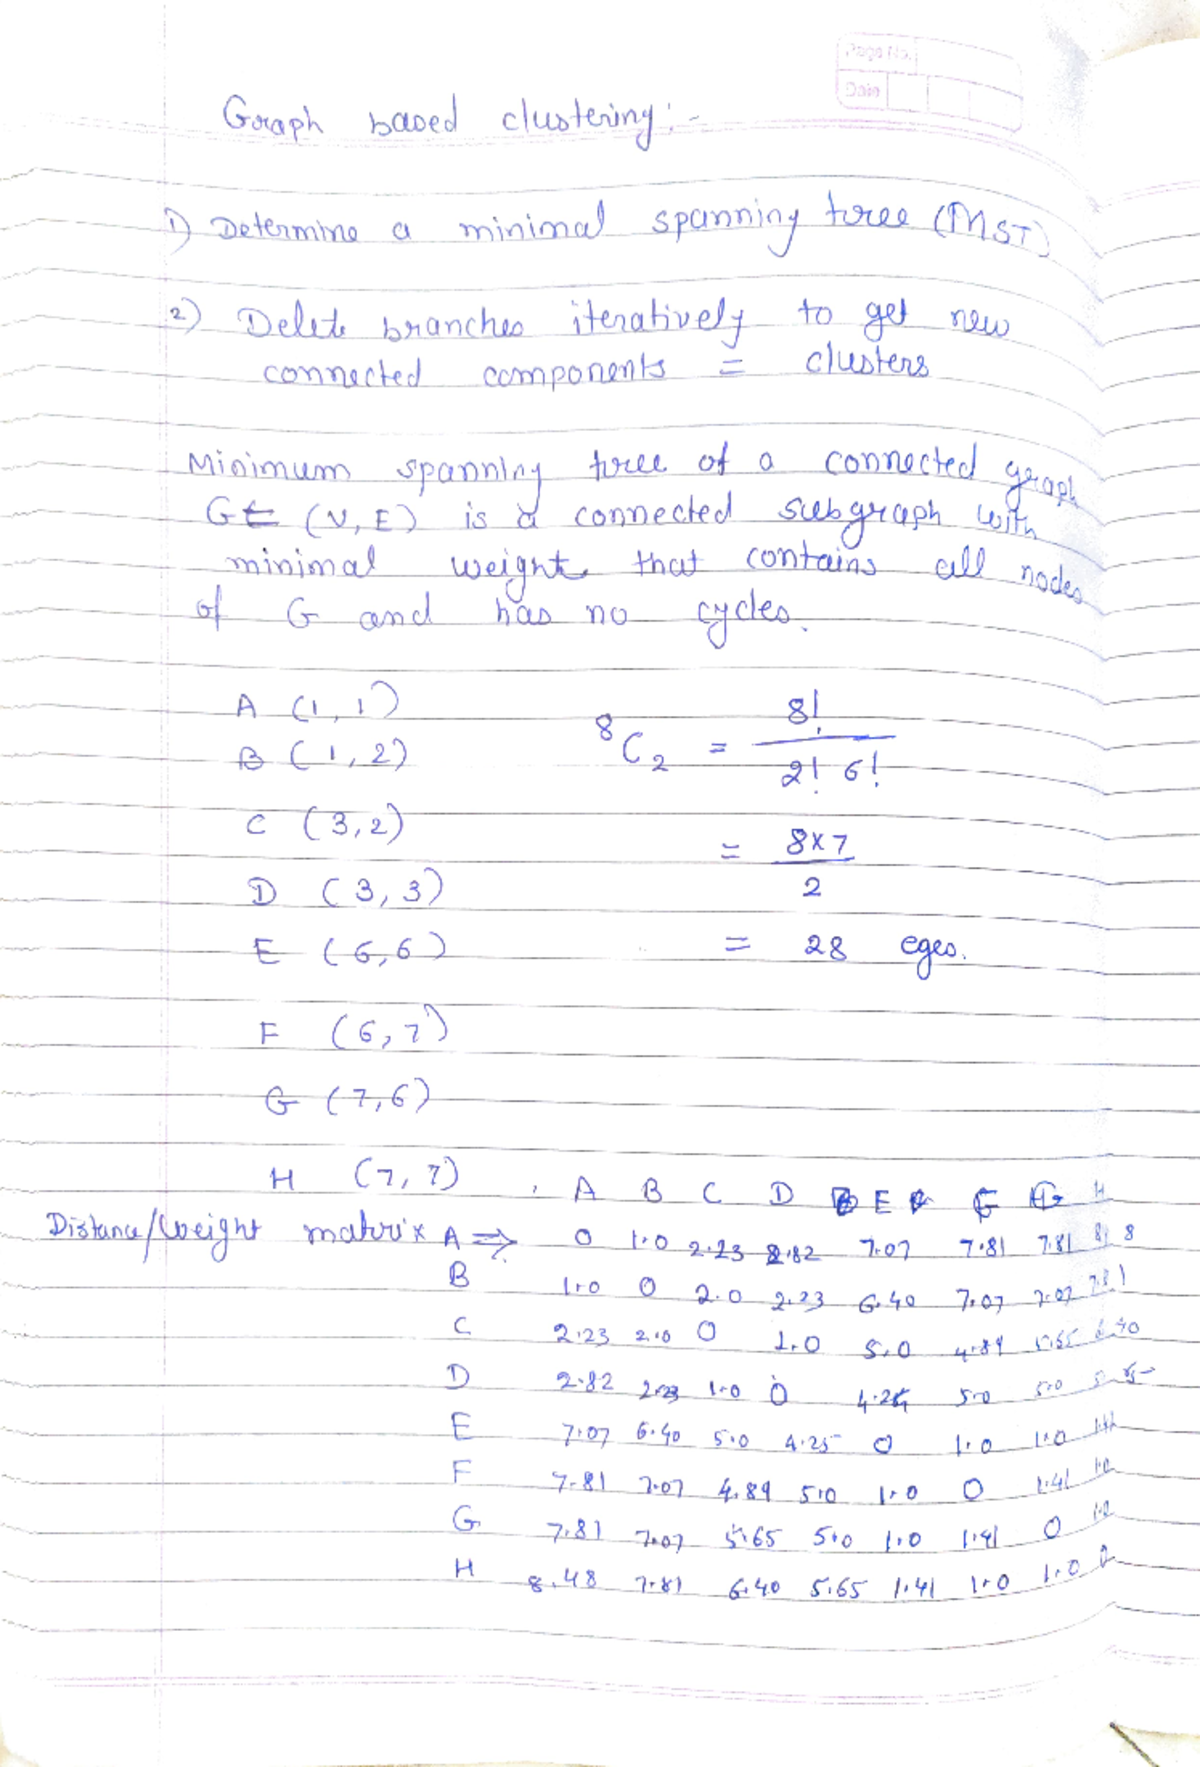 Page No.
Date
Graph based clustering :-
1) Determine a minimal spanning tree (MST)
2) Delete branches iteratively to get new
connected components = clusters
Minimum spanning tree of a connected graph
G = (V, E) is a connected subgraph with
minimal weight that contains all nodes
of G and has no cycles.
A (1, 1)
B (1, 2)
C (3, 2)
D (3, 3)
E (6, 6)
F (6, 7)
G (7, 6)
H (7, 7)
8C2 = 8! / 2! 6!
= 8x7 / 2
= 28 eges.
A B C D E F G H
Distance/Weight matrix A ⇒ 0 1.0 2.23 2.82 7.07 7.81 7.81 8
B 1.0 0 2.0 2.23 6.40 7.07 7.07 7.81
C 2.23 2.0 0 1.0 5.0 4.89 5.65 6.40
D 2.82 2.23 1.0 0 4.25 5.0 5.0 5.65
E 7.07 6.40 5.0 4.25 0 1.0 1.0 1.41
F 7.81 7.07 4.89 5.0 1.0 0 1.41 1.0
G 7.81 7.07 5.65 5.0 1.0 1.41 0 1.0
H 8.48 7.81 6.40 5.65 1.41 1.0 1.0 0